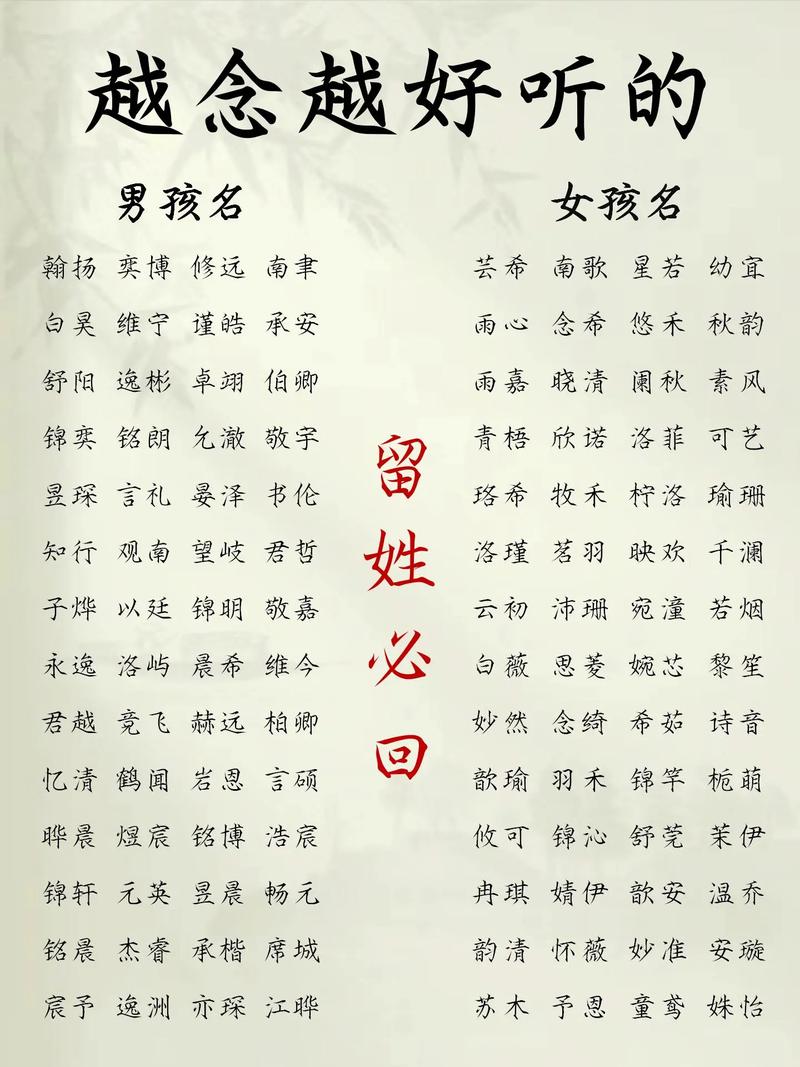 越念越好听的
男孩名
翰扬 奕博 修远 南聿
白昊 维宁 谨皓 承安
舒阳 逸彬 卓翊 伯卿
锦奕 铭朗 允澈 敬宇
昱琛 言礼 晏泽 书伦
知行 观南 望岐 君哲
子烨 以廷 锦明 敬嘉
永逸 洛屿 晨希 维今
君越 竞飞 赫远 柏卿
忆清 鹤闻 岩恩 言硕
晔晨 煜宸 铭博 浩宸
锦轩 元英 昱晨 畅元
铭晨 杰睿 承楷 席城
宸予 逸洲 亦琛 江晔
留姓必回
女孩名
芸希 南歌 星若 幼宜
雨心 念希 悠禾 秋韵
雨嘉 晓清 阑秋 素风
青梧 欣诺 洛菲 可艺
珞希 牧禾 柠洛 瑜珊
洛瑾 茗羽 映欢 千澜
云初 沛珊 宛潼 若烟
白薇 思菱 婉芯 黎笙
妙然 念绮 希茹 诗音
歆瑜 羽禾 锦竿 栀萌
攸可 锦沁 舒莞 茉伊
冉琪 婧伊 歆安 温乔
韵清 怀薇 妙准 安璇
苏木 予恩 童鸢 姝怡